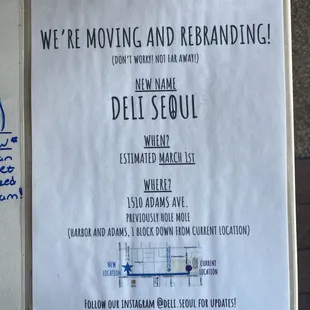 WE'RE MOVING AND REBRANDING!
(DON'T WORRY! NOT FAR AWAY!)
NEW NAME
DELI SEOUL
WHEN?
ESTIMATED MARCH 1ST
WHERE?
1510 ADAMS AVE.
PREVIOUSLY HOLE MOLE
(HARBOR AND ADAMS, 1 BLOCK DOWN FROM CURRENT LOCATION)
NEW LOCATION
CURRENT LOCATION
FOLLOW OUR INSTAGRAM @DELI.SEOUL FOR UPDATES!